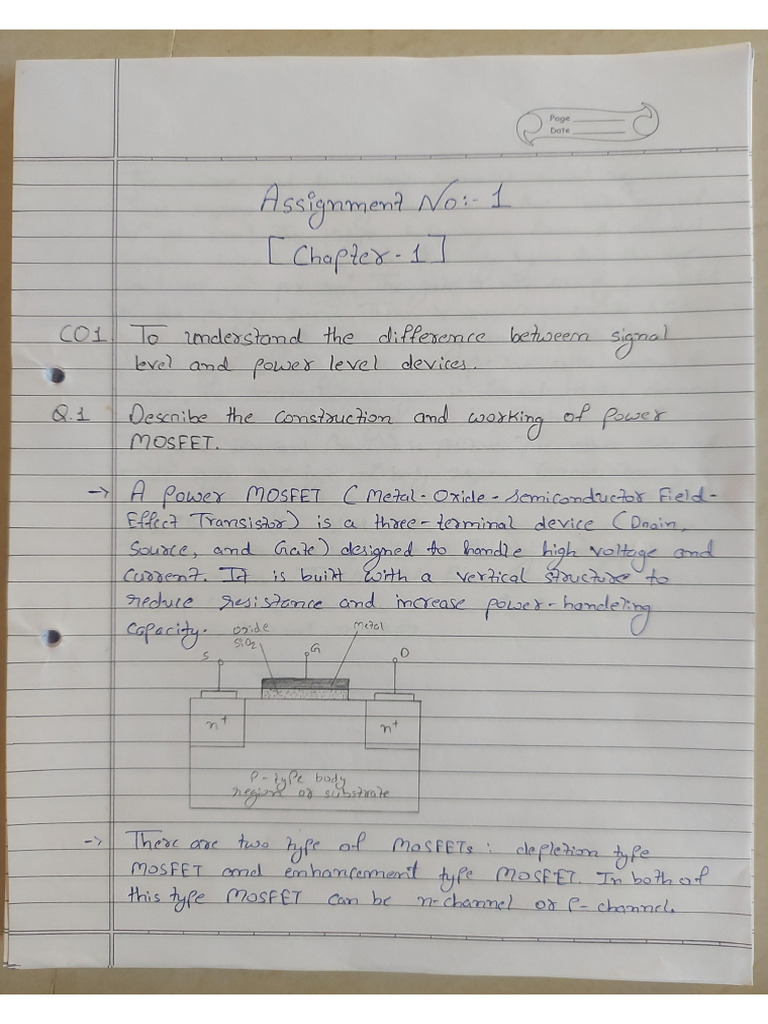 Page
Date
Assignment No:- 1
[Chapter-1]
CO1 To understand the difference between signal
level and power level devices.
Q.1 Describe the construction and working of power
MOSFET.
→ A power MOSFET (Metal-Oxide-Semiconductor Field-
Effect Transistor) is a three-terminal device (Drain,
Source, and Gate) designed to handle high voltage and
current. It is built with a vertical structure to
reduce resistance and increase power-handeling
capacity.
oxide
SiO2
metal
S
G
D
n+
n+
P-type body
region or substrate
→ There are two type of MOSFETs: depletion type
MOSFET and enhancement type MOSFET. In both of
this type MOSFET can be n-channel or P-channel.